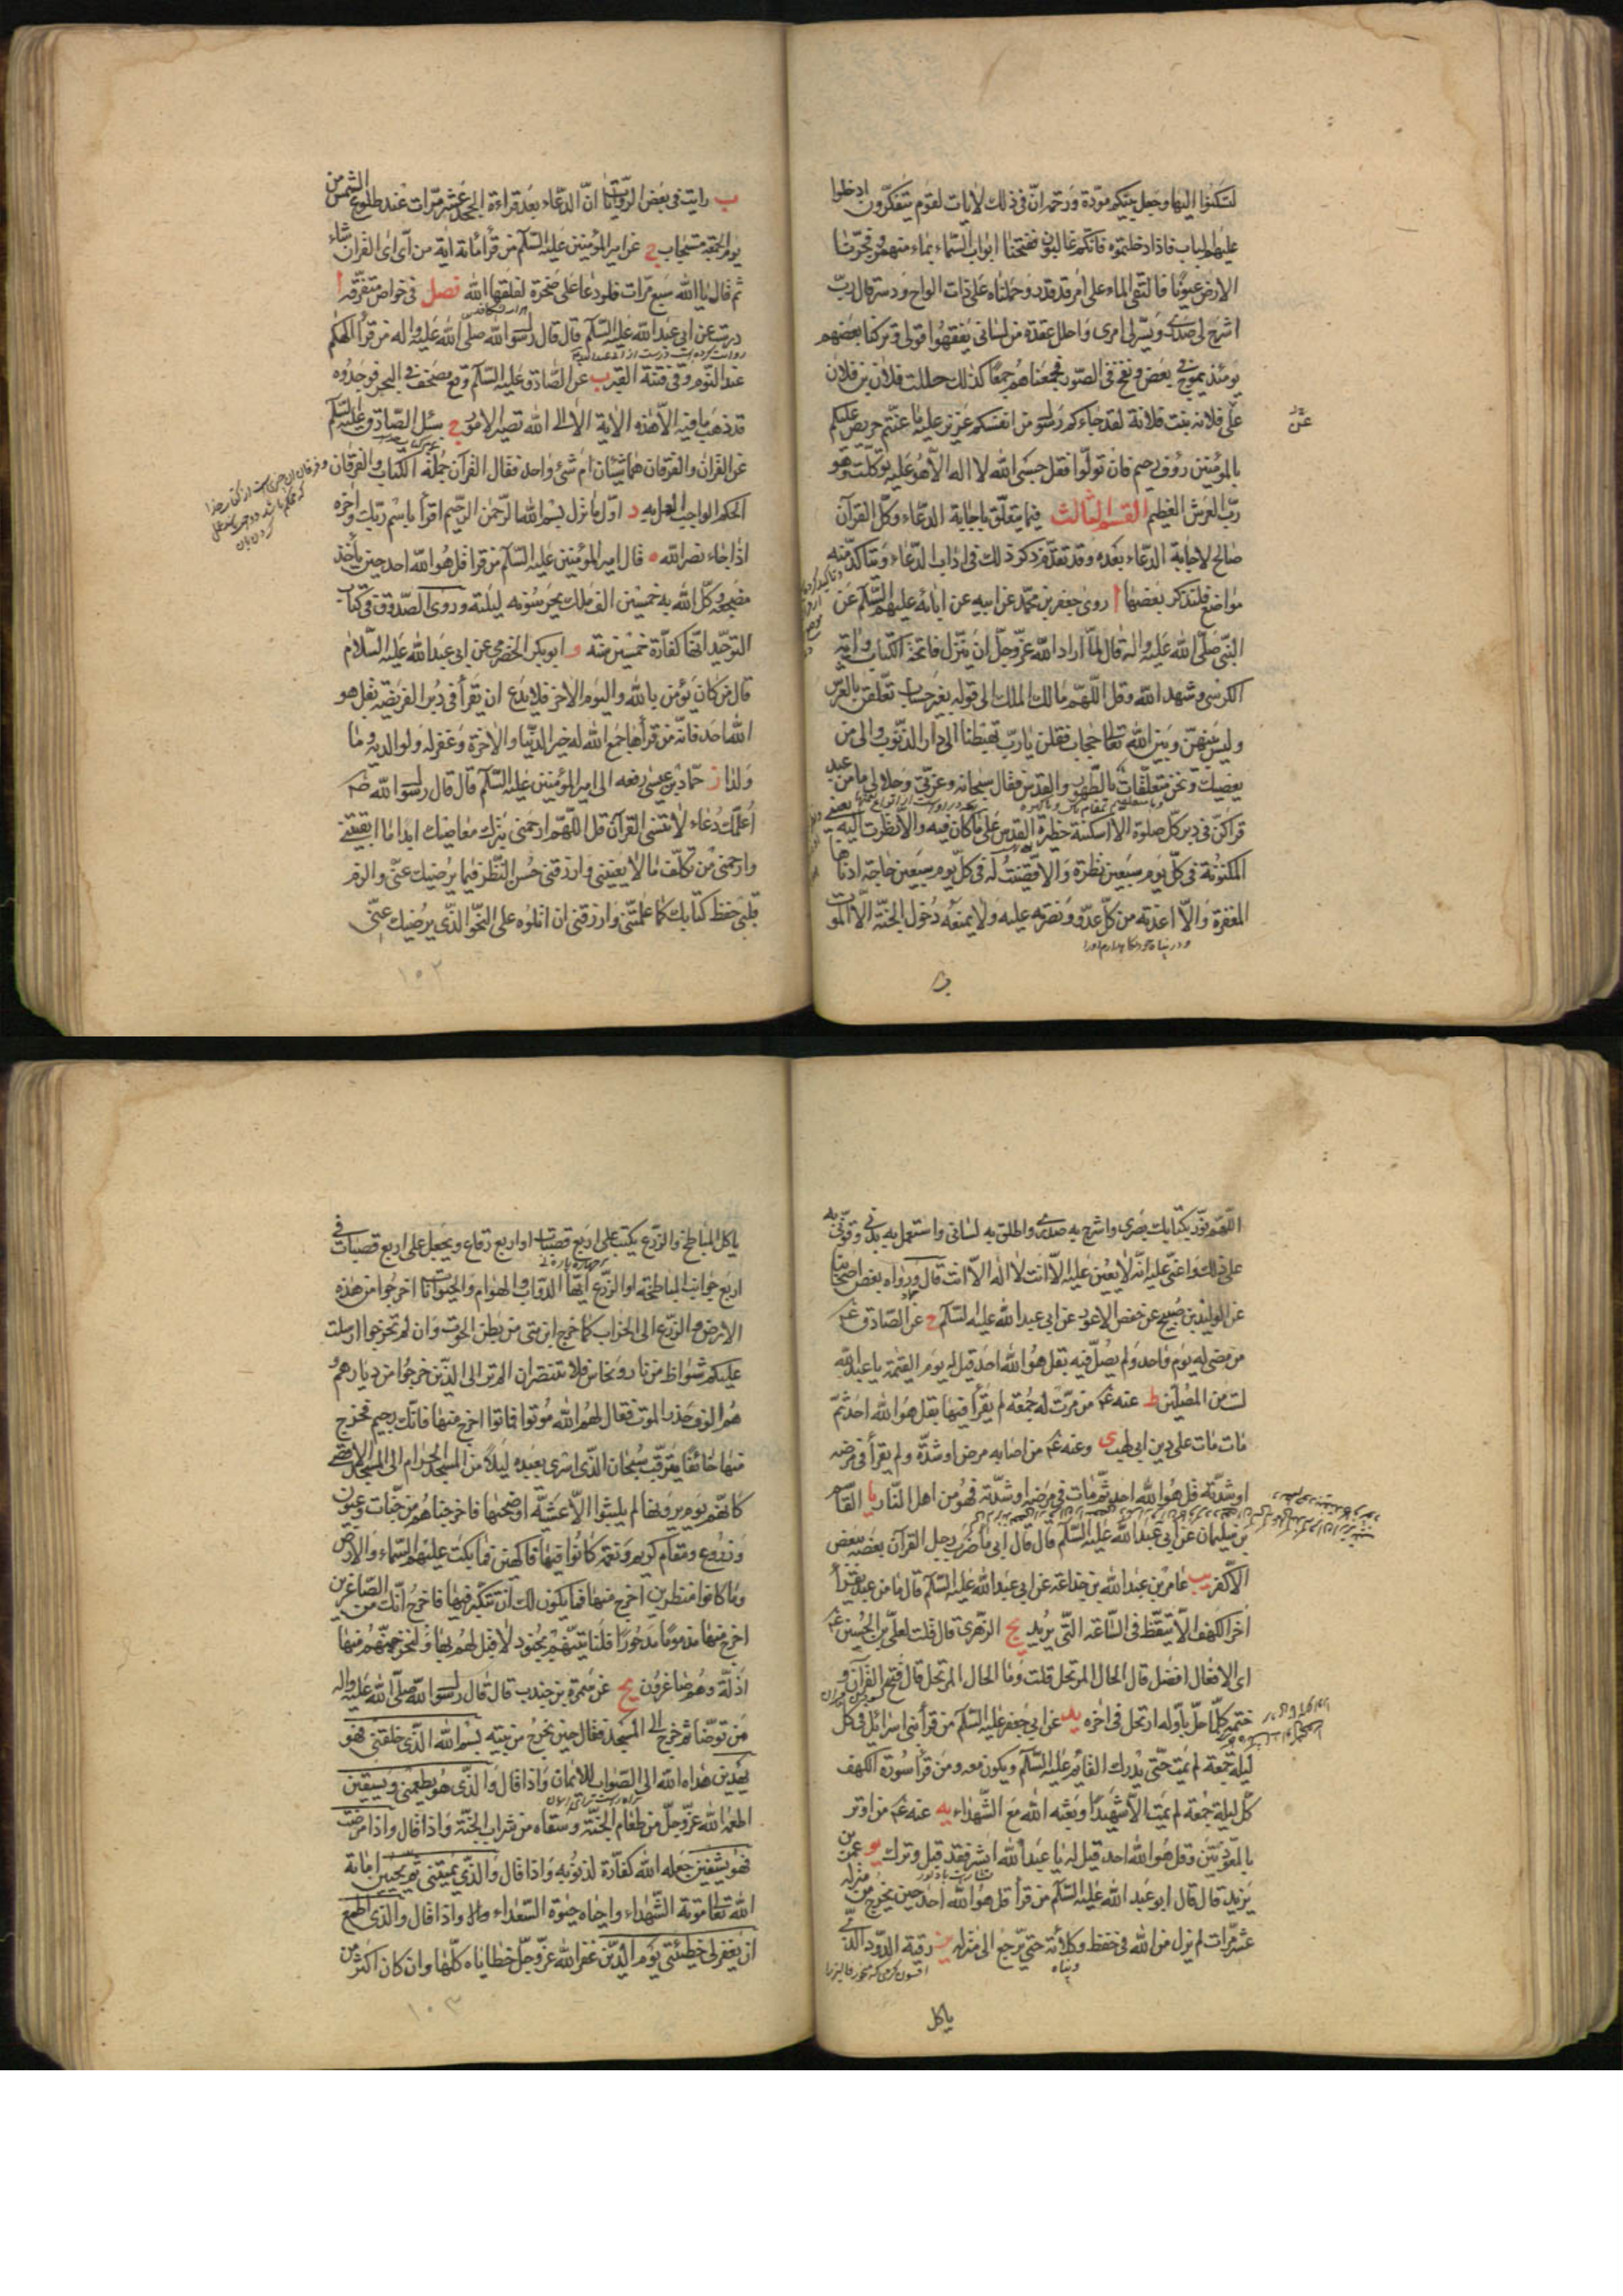 لتسكنوا اليها وجعل بينكم مودّة ورحمة انّ فى ذلك لآيات لقوم يتفكّرون ادخلوا
عليهم الباب فاذا دخلتموه فانّكم غالبون ففتحنا ابواب السّماء بماء منهمر وفجّرنا
الارض عيونًا فالتقى الماء على امر قد قدر وحملناه على ذات الواح ودسر قال ربّ
اشرح لى صدرى ويسّر لى امرى واحلل عقدة من لسانى يفقهوا قولى وتركنا بعضهم
يومئذ يموج فى بعض ونفخ فى الصّور فجمعناهم جمعًا كذلك حللت فلان بن فلان
عن
على فلانة بنت فلانة لقد جاءكم رسول من انفسكم عزيز عليه ما عنتّم حريص عليكم
بالمؤمنين رؤف رحيم فان تولّوا فقل حسبى الله لا اله الّا هو عليه توكّلت وهو
ربّ العرش العظيم القسم الثالث فيما يتعلّق باجابة الدّعاء وكلّ القرآن
صالح لاجابة الدّعاء بعده وقد تقدّم ذكر ذلك فى اداب الدّعاء ويتاكّد منه
مواضع فلنذكر بعضها ا روى جعفر بن محمّد عن ابيه عن ابائه عليهم السّلم عن
النّبى صلّى الله عليه واله قال لمّا اراد الله عزّ وجلّ ان ينزل فاتحة الكتاب واية
الكرسى وشهد الله وقل اللّهمّ مالك الملك الى قوله بغير حساب تعلّقن بالعرش
وليس بينهنّ وبين الله تعالى حجاب فقلن يا ربّ تهبطنا الى دار الذّنوب والى من
يعصيك ونحن متعلّقات بالطّهور والقدس فقال سبحانه وعزّتى وجلالى ما من عبد
قراكنّ فى دبر كلّ صلوة الّا اسكنته حظيرة القدس على ما كان فيه والّا نظرت اليه بعينى
المكنونة فى كلّ يوم سبعين نظرة والّا قضيت له فى كلّ يوم سبعين حاجة ادناها
المغفرة والّا اعذته من كلّ عدوّ ونصرته عليه ولا يمنعه دخول الجنّة الّا الموت
ب رايت فى بعض الرّوايات انّ الدّعاء بعد قراءة الجحد عشر مرّات عند طلوع الشمس من
يوم الجمعة مستجاب ج عن امير المؤمنين عليه السّلم من قرأ مائة اية من اىّ اى القرآن شاء
ثم قال يا الله سبع مرّات فلو دعا على صخرة لفلقها الله فصل فى خواصّ متفرّقة ا
درست عن ابى عبدالله عليه السّلم قال قال رسول الله صلّى الله عليه واله من قرأ الهيكم
عند النّوم وقى فتنة القبر ب عن الصّادق عليه السّلم وقع مصحف فى البحر فوجدوه
قد ذهب ما فيه الّا هذه الاية الا الى الله تصير الامور ج سئل الصّادق عليه السّلم
عن القرآن والفرقان هما شيئان ام شئ واحد فقال القرآن جملة الكتاب والفرقان
المحكم الواجب العمل به د اوّل ما نزل بسم الله الرّحمن الرّحيم اقرأ باسم ربّك واخره
اذا جاء نصر الله ه قال امير المؤمنين عليه السّلم من قرأ قل هو الله احد حين يأخذ
مضجعه وكّل الله به خمسين الف ملك يحرسونه ليلته وروى الصّدوق فى كتاب
التوحيد انّها كفّارة خمسين سنة و ابو بكر الحضرمى عن ابى عبدالله عليه السّلام
قال من كان يؤمن بالله واليوم الاخر فلا يدع ان يقرأ فى دبر الفريضة بقل هو
الله احد فانّه من قرأها جمع الله له خير الدّنيا والاخرة وغفر له ولوالديه وما
ولدا ز حمّاد بن عيسى رفعه الى امير المؤمنين عليه السّلم قال قال رسول الله ص
اعلّمك دعاء لا تنسى القرآن قل اللّهمّ ارحمنى بترك معاصيك ابدا ما ابقيتنى
وارحمنى من تكلّف ما لا يعنينى وارزقنى حسن النّظر فيما يرضيك عنّى والزم
قلبى حفظ كتابك كما علّمتنى وارزقنى ان اتلوه على النّحو الّذى يرضيك عنّى
١٠٢
اللّهمّ نوّر بكتابك بصرى واشرح به صدرى واطلق به لسانى واستعمل به بدنى وقوّنى به
على ذلك واعنّى عليه انّه لا يعين عليه الّا انت لا اله الّا انت قال ورواه بعض اصحابنا
عن الوليد بن صبيح عن حفص الاعور عن ابى عبدالله عليه السّلم ح عن الصّادق ع
من مضى له يوم واحد ولم يصلّ فيه بقل هو الله احد قيل له يوم القيمة يا عبد الله
لست من المصلّين ط عنه ع من مرّت له جمعة لم يقرأ فيها بقل هو الله احد ثمّ
مات مات على دين ابى لهب ى وعنه ع من اصابه مرض او شدّة ولم يقرأ فى مرضه
او شدّته قل هو الله احد ثمّ مات فى مرضه او شدّته فهو من اهل النّار يا القاسم
بن سليمان عن ابى عبدالله عليه السّلم قال قال ابى ما ضرب رجل القرآن بعضه ببعض
الّا كفر يب عامر بن عبدالله بن جذاعة عن ابى عبدالله عليه السّلم قال ما من عبد يقرأ
آخر الكهف الّا تيقّظ فى السّاعة الّتى يريد يج الزّهرى قال قلت لعلىّ بن الحسين ع
اىّ الاعمال افضل قال الحالّ المرتحل قلت وما الحال المرتحل قال فتح القرآن و
ختمه كلّما حلّ باوّله ارتحل فى اخره يد عن ابى جعفر عليه السّلم من قرأ بنى اسرائيل فى كلّ
ليلة جمعة لم يمت حتّى يدرك القائم عليه السّلم ويكون معه ومن قرأ سورة الكهف
كلّ ليلة جمعة لم يمت الّا شهيدًا وبعثه الله مع الشّهداء يه عنه ع من اوتر
بالمعوّذتين وقل هو الله احد قيل له يا عبدالله ابشر فقد قبل وترك يو عمر بن
يزيد قال قال ابو عبد الله عليه السّلم من قرأ قل هو الله احد حين يخرج من منزله
عشر مرّات لم يزل من الله فى حفظه وكلائه حتى يرجع الى منزله يز رقية الدّود الّذى
وپناه
ياكل
ياكل المباطخ والزّرع يكتب على اربع قصبات او اربع رقاع ويجعل على اربع قصبات فى
اربع جوانب المبطخة او الزّرع ايّها الدّوابّ والهوامّ والحيوانات اخرجوا من هذه
الارض والزّرع الى الخراب كما خرج ابن متى من بطن الحوت وان لم تخرجوا ارسلت
عليكم شواظ من نار ونحاس فلا تنتصران الم تر الى الّذين خرجوا من ديارهم و
هم الوف حذر الموت فقال لهم الله موتوا فماتوا اخرج منها فانّك رجيم فخرج
منها خائفًا يترقّب سبحان الّذى اسرى بعبده ليلًا من المسجد الحرام الى المسجد الاقصى
كانّهم يوم يرونها لم يلبثوا الّا عشيّة او ضحيها فاخرجناهم من جنّات وعيون
وزروع ومقام كريم ونعمة كانوا فيها فاكهين فما بكت عليهم السّماء والارض
وما كانوا منظرين اخرج منها فما يكون لك ان تتكبّر فيها فاخرج انّك من الصّاغرين
اخرج منها مذءومًا مدحورًا فلنأتينّهم بجنود لا قبل لهم بها ولنخرجنّهم منها
اذلّة وهم صاغرون يح عن سمرة بن جندب قال قال رسول الله صلّى الله عليه واله
من توضّأ ثم خرج الى المسجد فقال حين يخرج من بيته بسم الله الّذى خلقنى فهو
يهدين هداه الله الى الصّواب للايمان واذا قال والّذى هو يطعمنى ويسقين
اطعمه الله عزّ وجلّ من طعام الجنّة وسقاه من شراب الجنّة واذا قال واذا مرضت
فهو يشفين جعله الله كفّارة لذنوبه واذا قال والّذى يميتنى ثمّ يحيين اماته
الله تعالى موتة الشّهداء واحياه حيوة السّعداء واذا قال والّذى اطمع
ان يغفر لى خطيئتى يوم الدّين غفر الله عزّ وجلّ خطاياه كلّها وان كان اكثر من
١٠٣